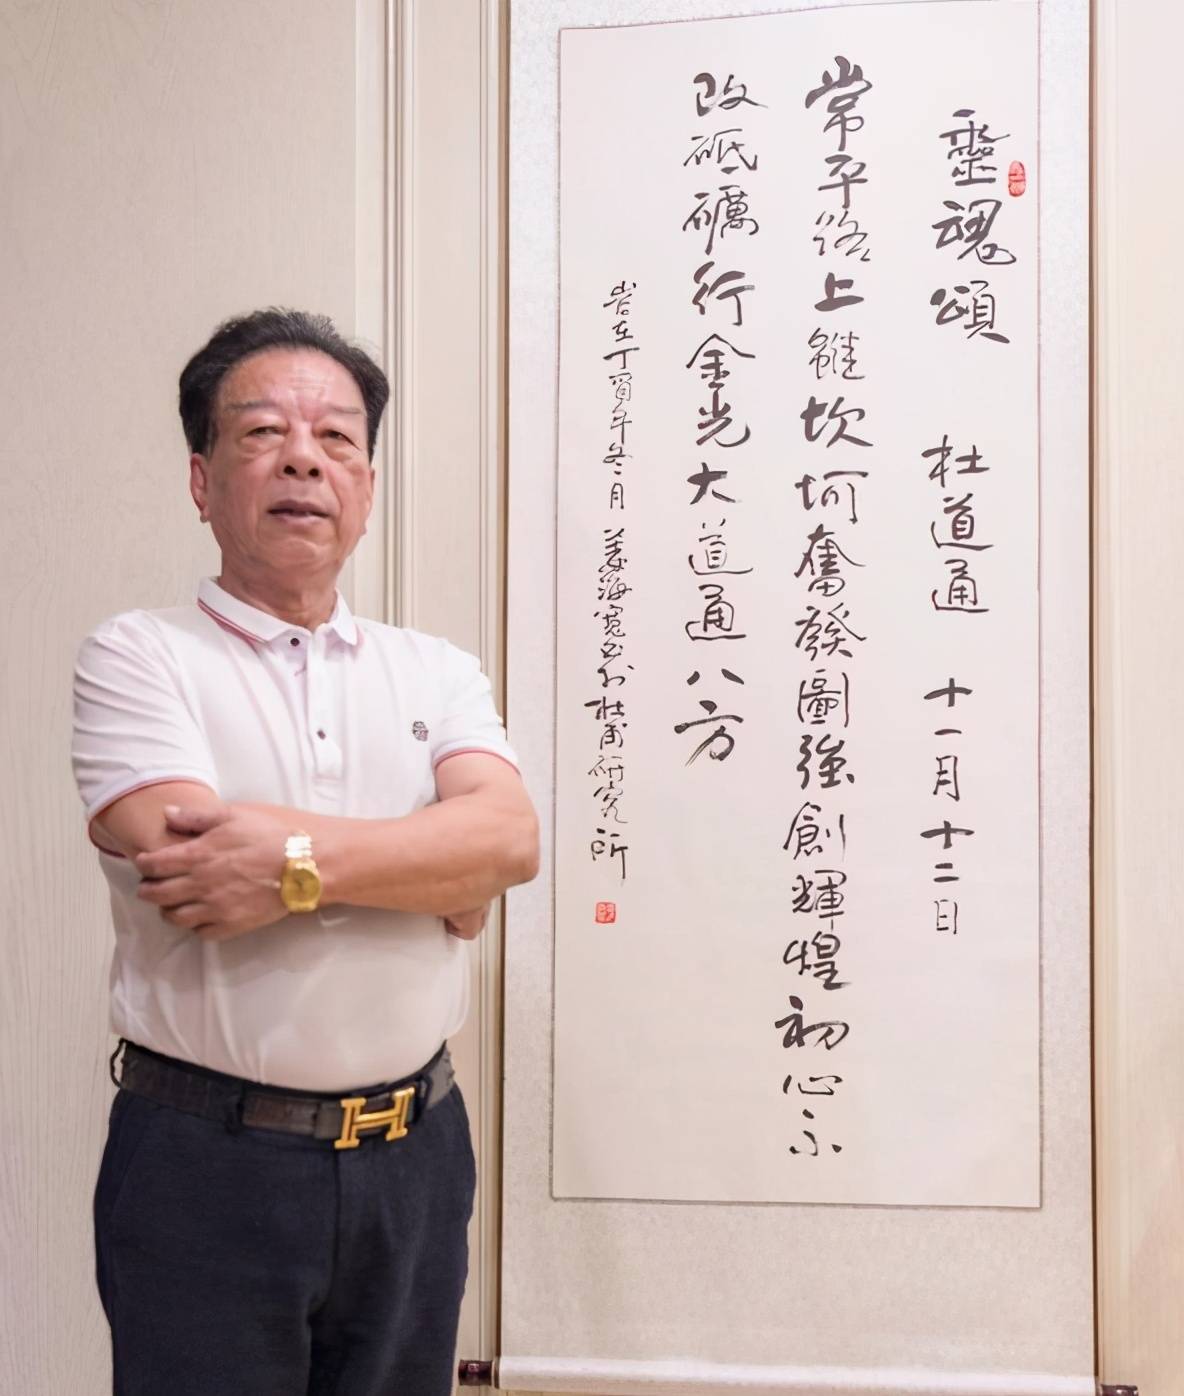 靈魂頌 杜道通 十一月十二日
常平路上雖坎坷奮發圖強創輝煌初心不
改砥礪行金光大道通八方
岩在丁酉年冬月 姜海寬書於杜甫研究所